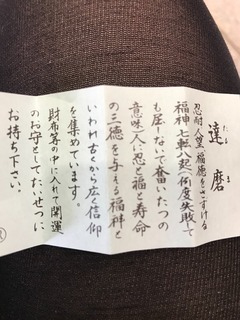 達磨
だるま
忍耐、人望、福徳をさずける
福神、七転八起(何度失敗して
も屈しないで奮いたつの
意味)人に忍と福と寿命
の三徳を与える福神と
いわれ古くから広く信仰
を集めています。
財布等の中に入れて開運
のお守としてたいせつに
お持ち下さい。